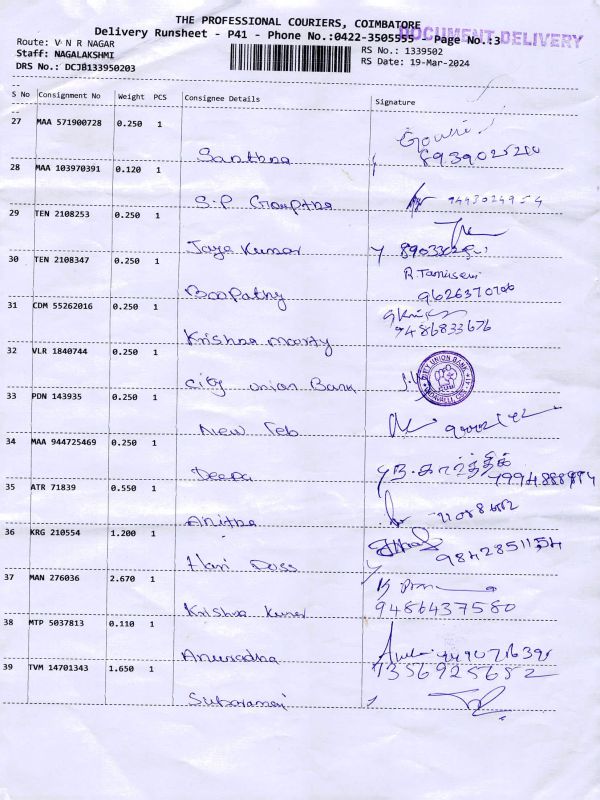 THE PROFESSIONAL COURIERS, COIMBATORE
Delivery Runsheet - P41 - Phone No.:0422-3505555 - Page No.:3
DOCUMENT DELIVERY
Route: V N R NAGAR
RS No.: 1339502
Staff: NAGALAKSHMI
RS Date: 19-Mar-2024
DRS No.: DCJB133950203
S No Consignment No Weight PCS Consignee Details Signature
27 MAA 571900728 0.250 1
Santhna 8939025210
28 MAA 103970391 0.120 1
S.P 9443024954
29 TEN 2108253 0.250 1
Jaya Kumar
30 TEN 2108347 0.250 1
R.Tamilselvi
BooPathy 9626370706
31 CDM 55262016 0.250 1
Krishna moorty 9486833676
32 VLR 1840744 0.250 1
City union Bank
CITY UNION BANK
33 PDN 143935 0.250 1
New Feb
34 MAA 944725469 0.250 1
Deepa கார்த்திக்
35 ATR 71839 0.550 1
Anitha
36 KRG 210554 1.200 1
Hari Doss 9842851154
37 MAN 276036 2.670 1
Krishna Kumar 9486437580
38 MTP 5037813 0.110 1
Anuradha
39 TVM 14701343 1.650 1
7356925652
Subramani